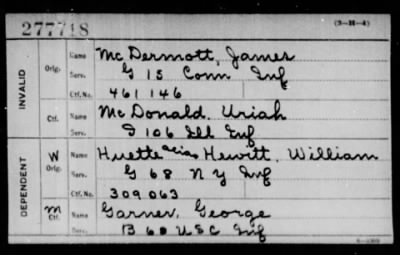 277718 (3-H-4)
INVALID Orig. Name McDermott, James
Serv. G 15 Conn Inf
Ctf. No. 461146
Ctf. Name McDonald, Uriah
Serv. I 106 Ill Inf
DEPENDENT W Orig. Name Huette alias Hewitt, William
Serv. G 68 N Y Inf
Ctf. No. 309063
M Ctf. Name Garner, George
Serv. B 60 U S C Inf